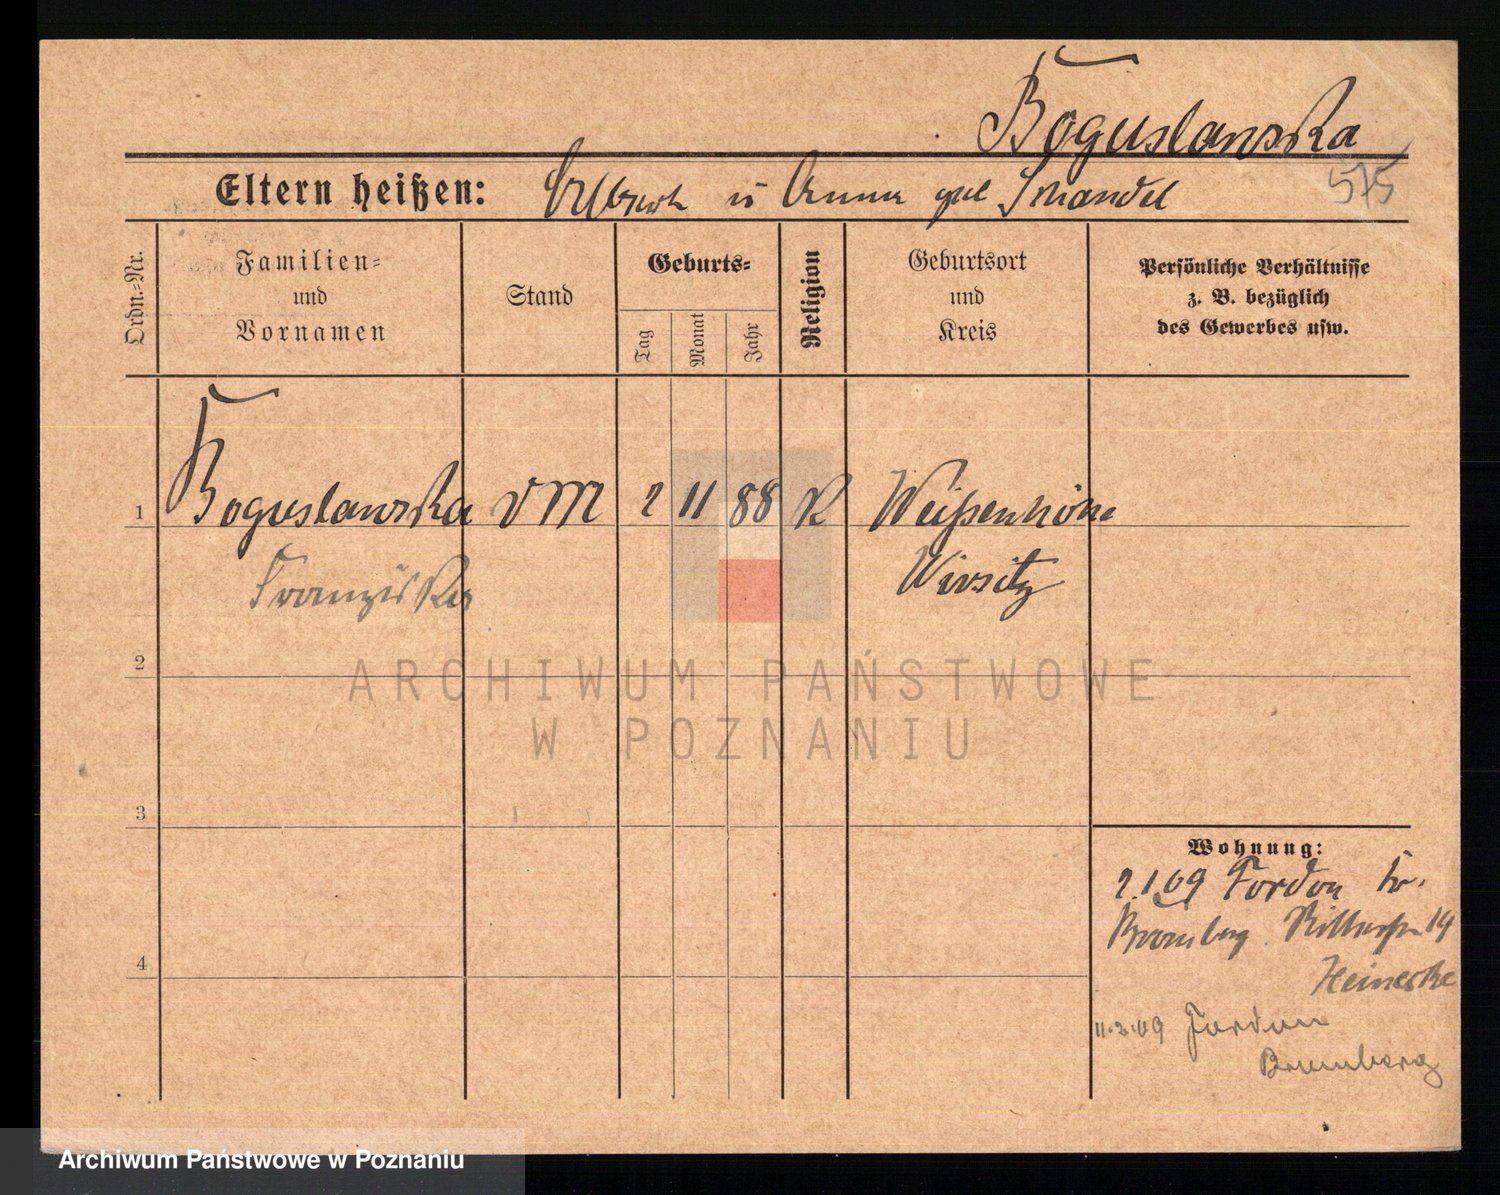 Boguslawska
575
Eltern heißen: Albrecht u Anna geb Schandel
Ordn.-Nr.
Familien-
und
Vornamen
Stand
Geburts-
Tag
Monat
Jahr
Religion
Geburtsort
und
Kreis
Persönliche Verhältnisse
z. B. bezüglich
des Gewerbes usw.
1 Boguslawska D M 2 11 88 K Weißenhöhe
Franziska Wirsitz
2
3
4
Wohnung:
2.1.09 Fordon Kr.
Bromberg Ritterstr 14
Heinecke
11.2.09 Fordon
Bromberg
ARCHIWUM PAŃSTWOWE
W POZNANIU
Archiwum Państwowe w Poznaniu